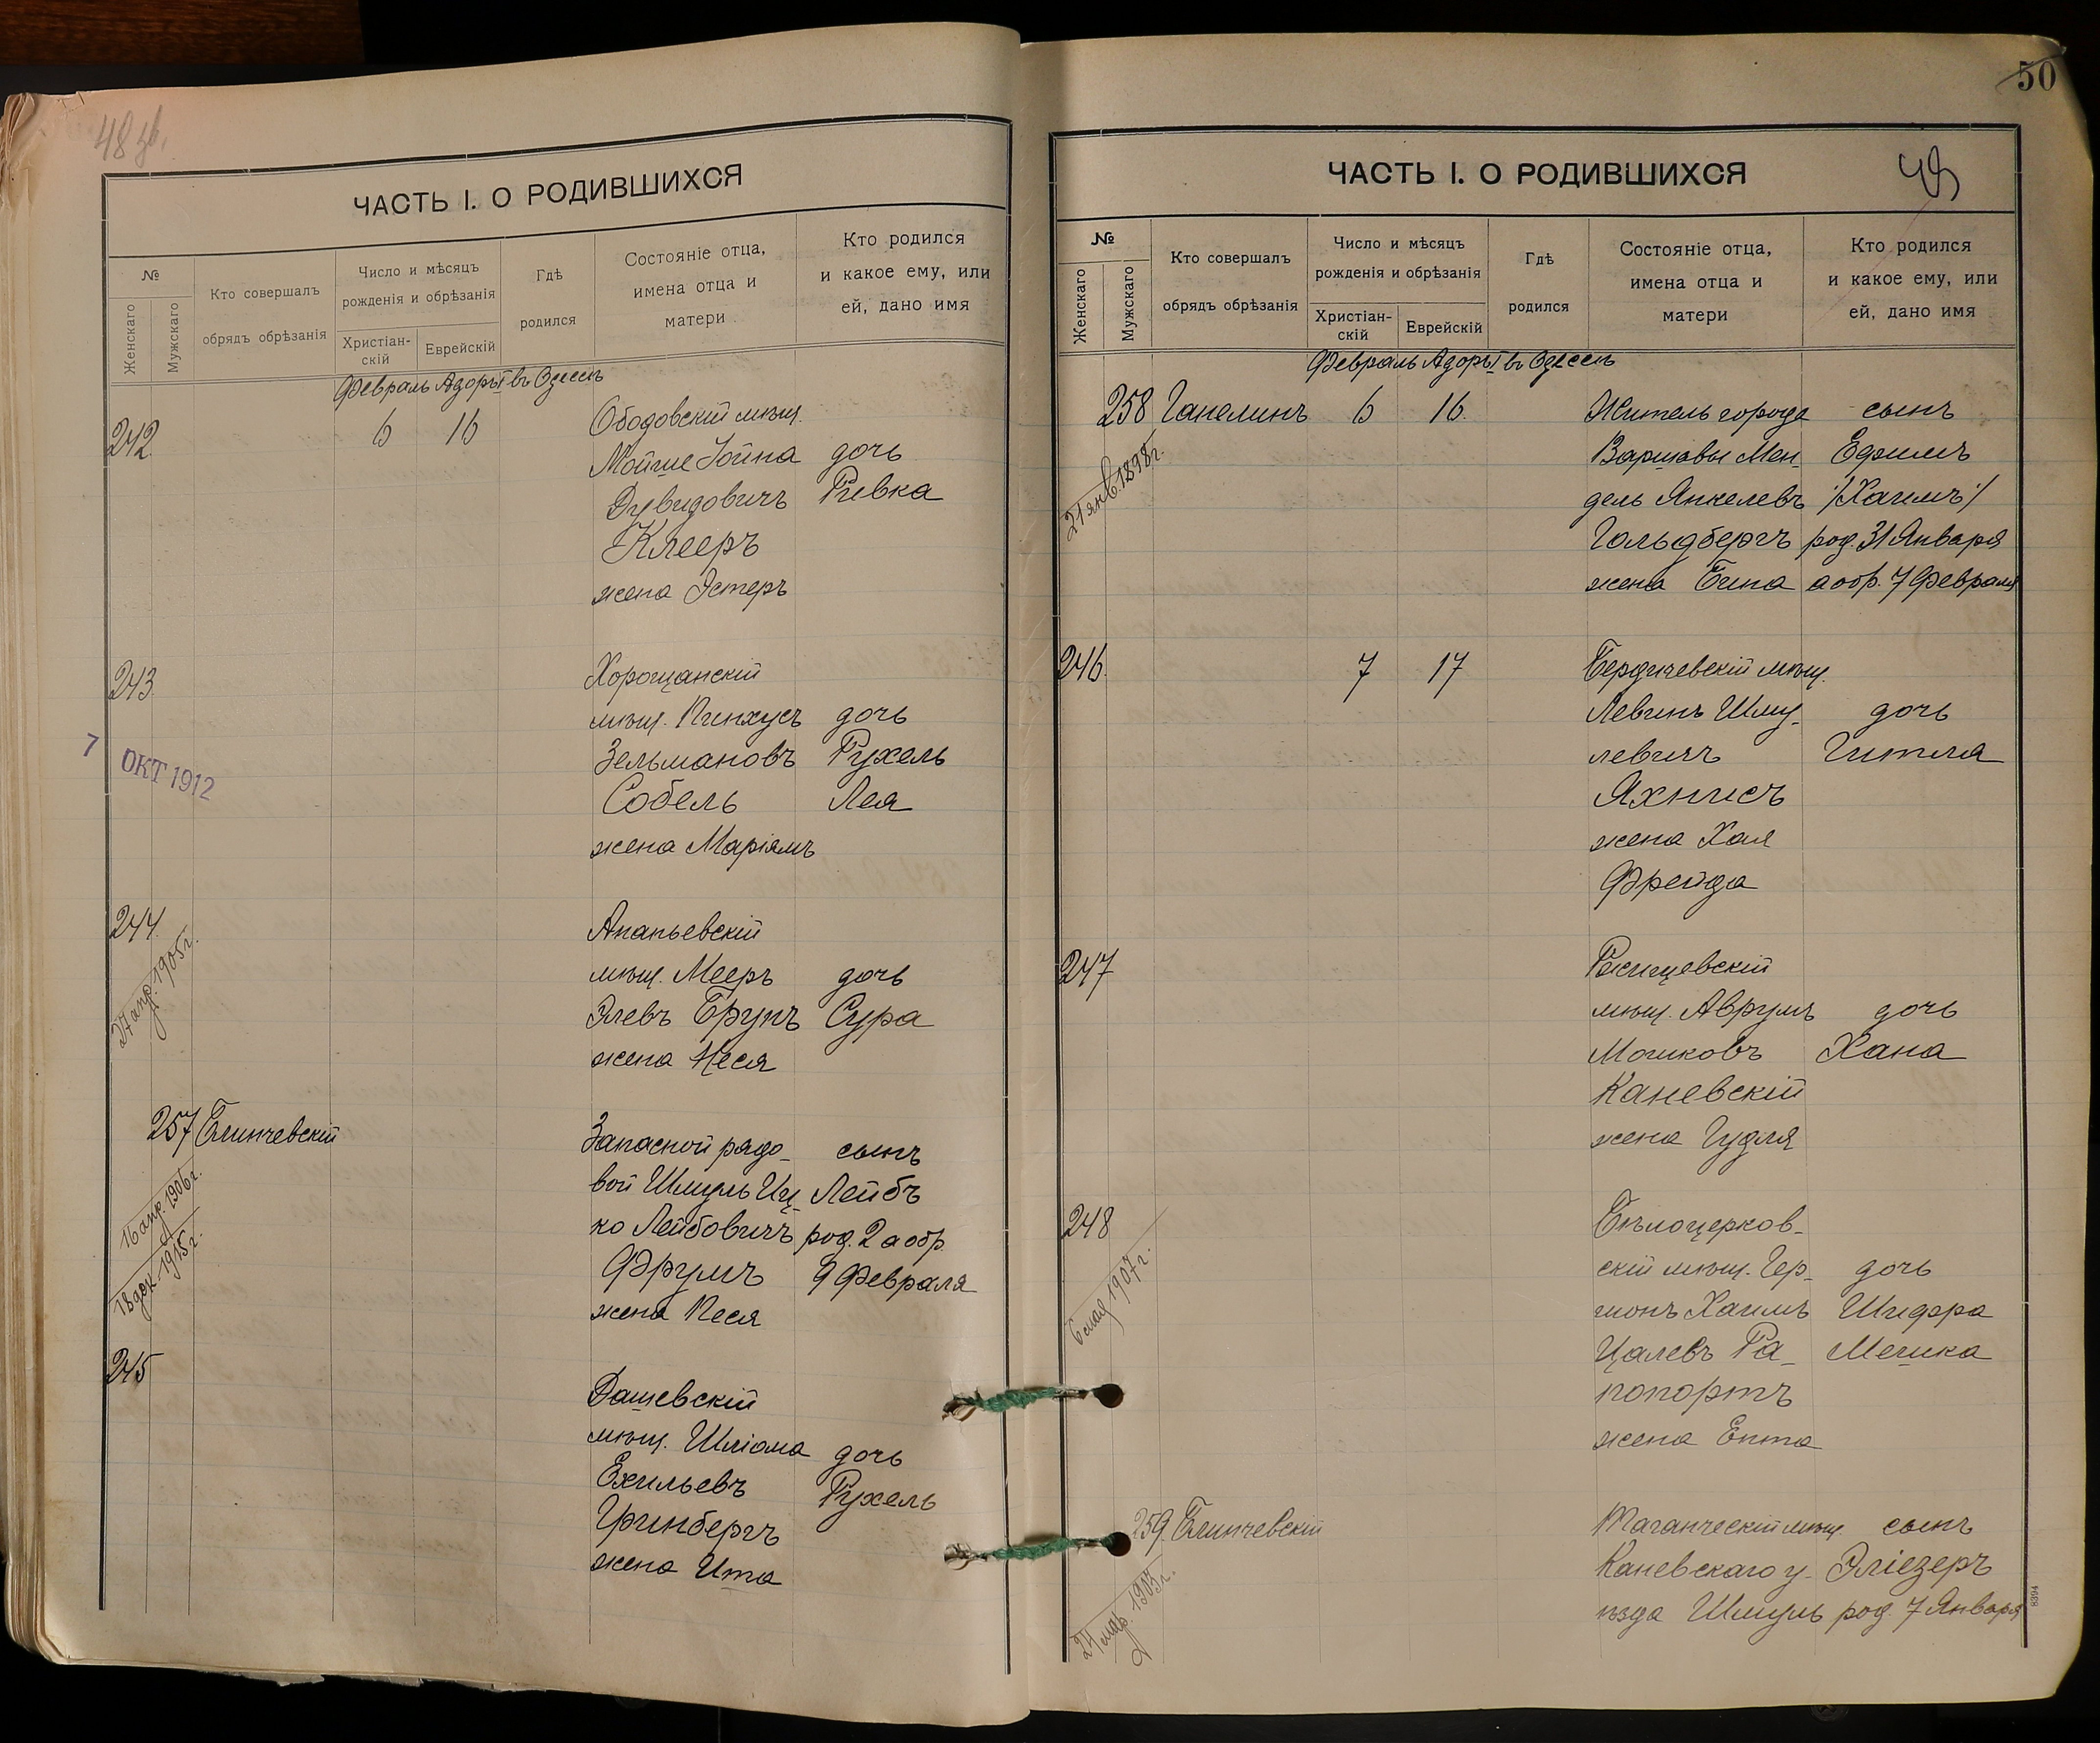 48 об.
ЧАСТЬ I. О РОДИВШИХСЯ
№
Женскаго
Мужскаго
Кто совершалъ
обрядъ обрѣзанія
Число и мѣсяцъ
рожденія и обрѣзанія
Христіан-
скій
Еврейскій
Гдѣ
родился
Состояніе отца,
имена отца и
матери
Кто родился
и какое ему, или
ей, дано имя
Февраль Адоръ I въ Одессѣ
242 6 16 Ободовскій мѣщ.
Мойше Іойна дочь
Дувидовичъ Ривка
Клееръ
жена Эстеръ
243 Хорощанскій
мѣщ. Пинхусъ дочь
Зельмановъ Рухель
Собель Лея
жена Маріямъ
7 ОКТ 1912
244 Ананьевскій
мѣщ. Мееръ дочь
Элевъ Брунъ Сура
жена Неся
27 апр. 1905 г.
257 Блинчевскій Запасной рядо- сынъ
вой Шмуль Иц- Лейбъ
ко Лейбовичъ род. 2 а обр.
Фрумъ 9 Февраля
жена Песя
16 апр. 1906 г.
18 дек. 1915 г.
245 Дашевскій
мѣщ. Шліома дочь
Ехильевъ Рухель
Гринбергъ
жена Ита
50
49
ЧАСТЬ I. О РОДИВШИХСЯ
№
Женскаго
Мужскаго
Кто совершалъ
обрядъ обрѣзанія
Число и мѣсяцъ
рожденія и обрѣзанія
Христіан-
скій
Еврейскій
Гдѣ
родился
Состояніе отца,
имена отца и
матери
Кто родился
и какое ему, или
ей, дано имя
Февраль Адоръ I въ Одессѣ
258 Ганелинъ 6 16 Житель города сынъ
Варшавы Мен- Ефимъ
дель Янкелевъ /Хаимъ/
Гольдбергъ род. 31 Января
жена Бина а обр. 7 Февраля
21 янв. 1898 г.
246 7 17 Бердичевскій мѣщ.
Левинъ Шму- дочь
левичъ Гитля
Яхнисъ
жена Хая
Фрейда
247 Ракищевскій
мѣщ. Аврумъ дочь
Мошковъ Хана
Каневскій
жена Гудля
248 Бѣлоцерков-
скій мѣщ. Гер- дочь
шонъ Хаимъ Шифра
Цалевъ Ра- Мешка
попортъ
жена Ента
6 мая 1907 г.
259 Блинчевскій Таганческій мѣщ. сынъ
Каневскаго у- Эліезеръ
ѣзда Шмуль род. 7 Января
24 мар. 1903 г.
8394